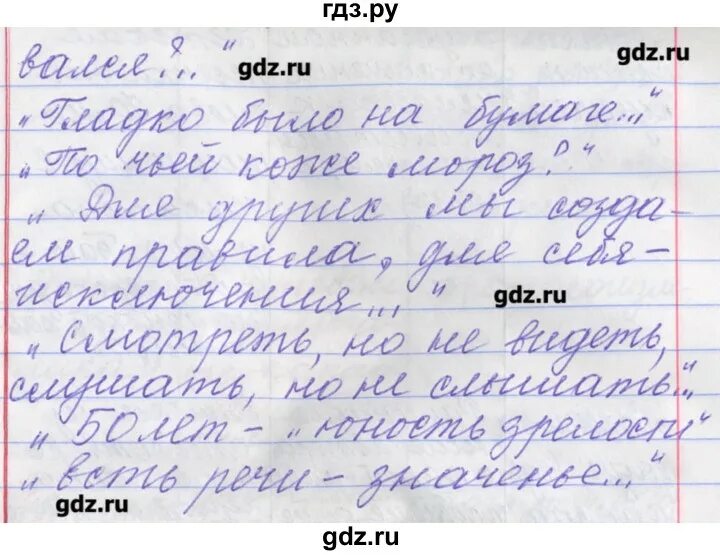 гдз.ру
вался?.."
gdz.ru
„Гладко было на бумаге..."
„По чьей коже мороз?"
„Для других мы созда-
ем правила, для себя-
исключения..."
gdz.ru
„Смотреть, но не видеть,
слушать, но не слышать..."
„50 лет - „юность зрелости"
„Есть речи - значенье..."
gdz.ru
gdz.ru